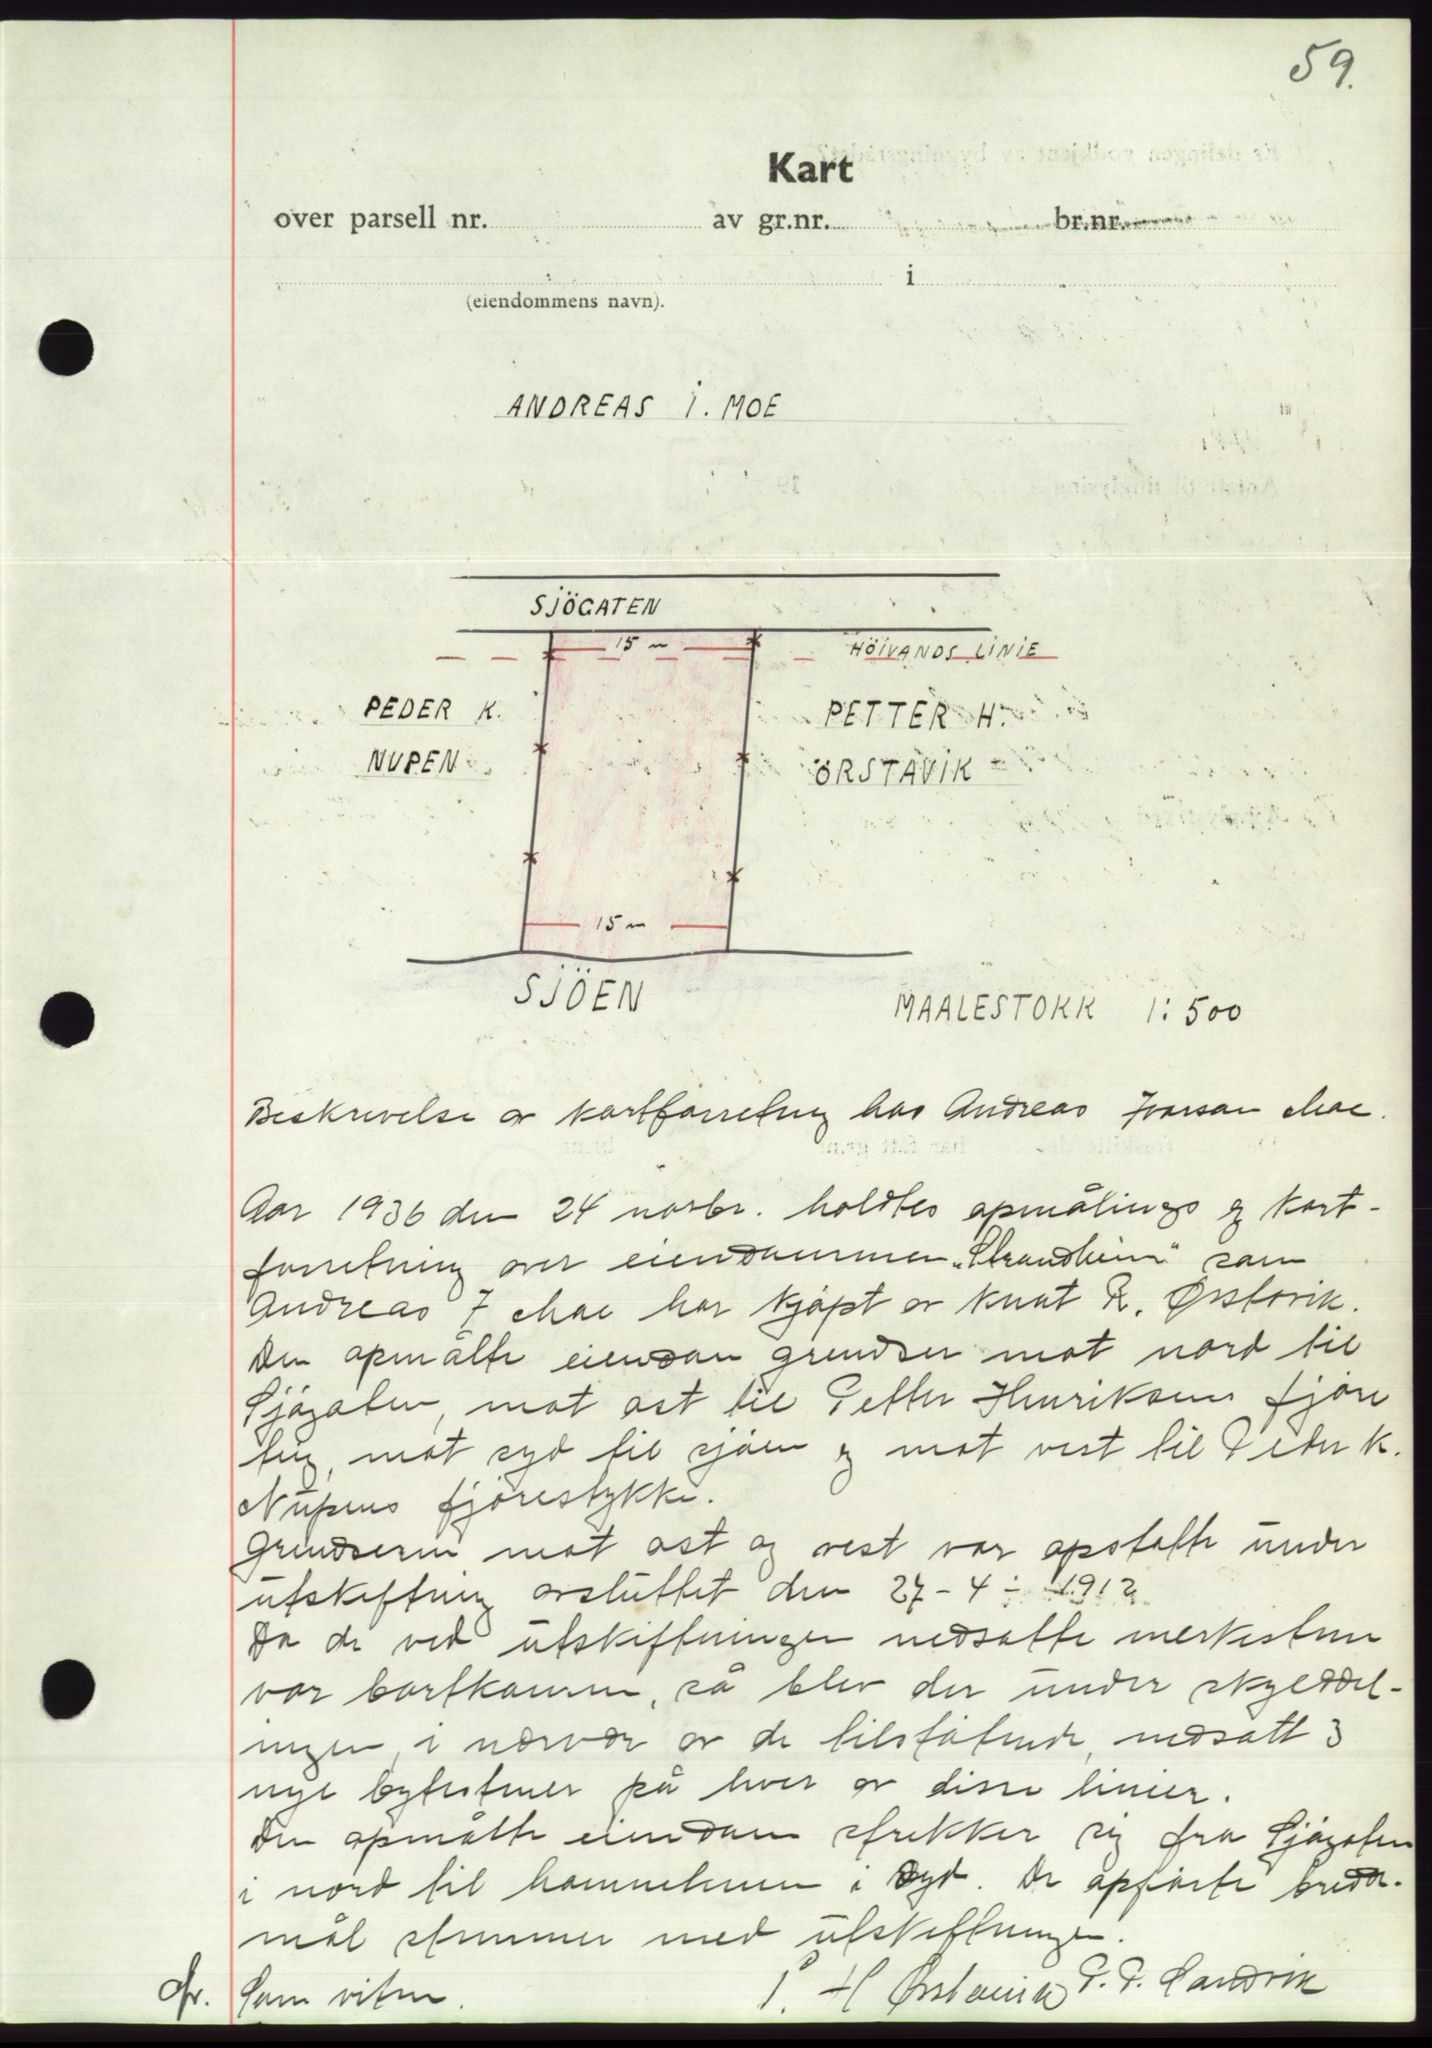 59.
Kart
over parsell nr. av gr.nr. br.nr.
i
(eiendommens navn).
ANDREAS I. MOE
SJÖGATEN
15 m
HÖIVANDS LINIE
PEDER K.
NUPEN
PETTER H.
ÖRSTAVIK
15 m
SJÖEN
MAALESTOKK 1:500
Beskrivelse av kartforretning hos Andreas Ivarson Moe.
Aar 1936 den 24 novbr. holdtes opmålings og kart-
forretning over eiendommen „Strandheim" som
Andreas I Moe har kjøpt av Knut R. Ørstavik.
Den opmålte eiendom grendser mot nord til
Sjøgaten, mot øst til Petter Henriksens fjøre
mot syd til sjøen og mot vest til Peder K.
Nupens fjørestykke.
Grendserne mot øst og vest var opstatte under
utskiftning avsluttet den 27-4-1912
Da de ved utskiftningen nedsatte merkestene
var bortkomne, så blev der under skylddel-
ingen, i nærvær av de tilstøtende, nedsatt 3
nye bytestener på hver av disse linier.
Den opmålte eiendom strekker sig fra Sjøgaten
i nord til i syd. De opførte bredde-
mål stemmer med utskiftningen.
Som vitne. P. H Ørstavik P. P. Sandvik